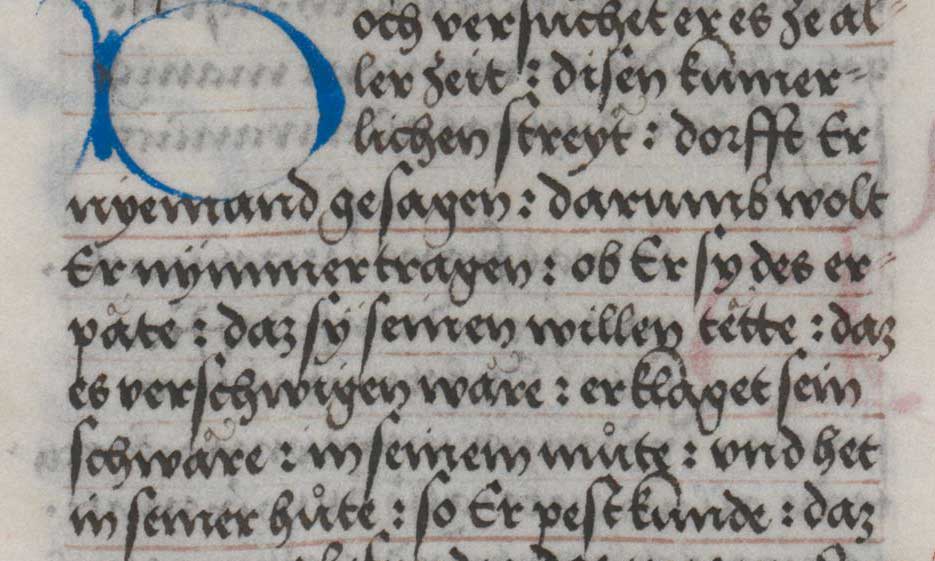 Doch versuchet er es ze al⸗
ler zeit : disen kumer⸗
lichen streyt : dorfft Er
nyemand gesagen : darumb wolt
Er nymmer tragen : ob Er sy des er⸗
päte : daz sy seinen willen tëtte : daz
es verschwigen wäre : er klaget sein
schwäre : in seinem můte : vnd het
in seiner hůte : so Er pest kunde : daz